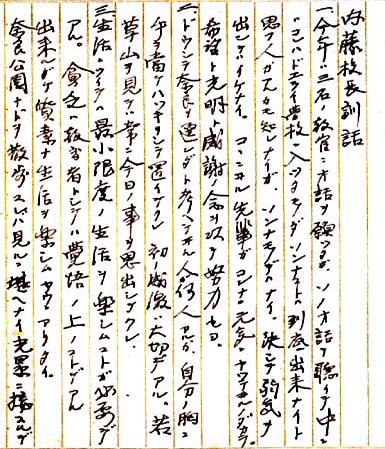 内藤校長訓話
一、今、午前三名ノ教官ニオ話ヲ願ッタガ、ソノオ話ヲ聴イテ中ニ
コンナドエライ学校ニ入ッタモノダ ソンナコトハ到底出来ナイト
思フ人ガアルカモ知レナイガ、ソンナモノデハナイ、決シテ弱気ヲ
出シテハイケナイ、ココニヰル先輩ガコンナニ元気ニヤッテヰルノダカラ。
希望ト光明ト感謝ノ念ヲ以テ努力セヨ。
二、ドウシテ奈良ヲ選ンダト考ヘテヰル人何人アルカ、自分ノ胸ニ
手ヲ当テハッキリシテ置イテクレ 初感激ハ大切デアル。若
草山ヲ見タ幸ニ今日ノ事ヲ思出シテクレ。
三、生活ニツイテハ最小限度ノ生活ヲ楽シムコトガ必要デ
アル。貧乏ハ教育者トシテハ覚悟ノ上ノコトデアル
出来ルダケ質素ナ生活ヲ楽シムヤウアリタイ。
奈良公園ナドヲ散歩スレバ見ルニ堪ヘナイ光景ニ接スルガ